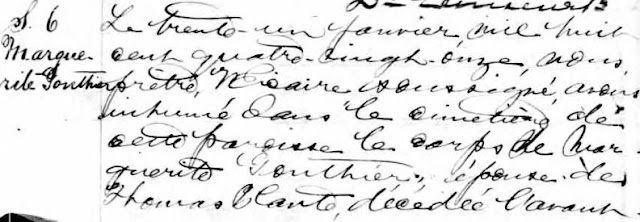 S. 6
Margue-
rite Gonthier
Le trente-un janvier, mil huit
cent quatre-vingt-onze, nous,
prêtre, Vicaire soussigné, avons
inhumé dans le cimetière de
cette paroisse le corps de Mar-
guerite Gonthier, épouse de
Thomas Plante, décédée l'avant